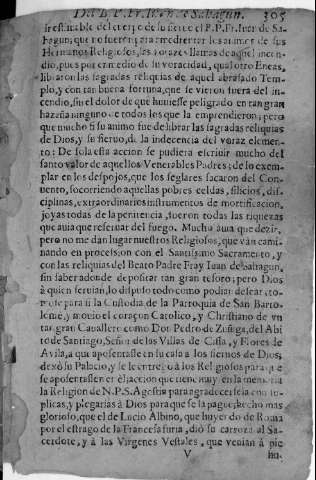 Del B. P. Fr. Iuan de Sahagun. 305
del cuerpo de su fiero el P. P. Fr. Iuan de Sa-
hagun; que no fueron para amedrentar los animos de sus
Hermanos Religiosos, las vorazes llamas de aquel incen-
dio, pues por en medio de su voracidad, qual otro Eneas,
libraron las sagradas reliquias de aquel abrasado Tem-
plo, y con tan buena fortuna, que se vieron fuera del in-
cendio, sin el dolor de que huuiesse peligrado en tan gran
hazaña ninguno de todos los que la emprendieron; pero
que mucho si su animo fue de librar las sagradas reliquias
de Dios, y su sieruo, de la indecencia del voraz elemen-
to: De sola esta accion se pudiera escriuir mucho del
santo valor de aquellos Venerables Padres; de lo exem-
plar en los despojos, que los seglares sacaron del Con-
uento, socorriendo aquellas pobres celdas, silicios, dis-
ciplinas, extraordinarios instrumentos de mortificacion,
joyas todas de la penitencia, fueron todas las riquezas
que auia que reseruar del fuego. Mucho auia que dezir,
pero no me dan lugar nuestros Religiosos, que van cami-
nando en procession con el Santissimo Sacramento, y
con las reliquias del Beato Padre Fray Iuan de Sahagun,
sin saber adonde depositar tan gran tesoro; pero Dios
à quien seruian, lo dispuso todo como podian desear; to-
mole para si la Custodia de la Parroquia de San Barto-
lome, y mouiò el coraçon Catolico, y Christiano de vn
tan gran Cauallero como Don Pedro de Zuñiga, del Abi
to de Santiago, Señor de las Villas de Cisla, y Flores de
Avila, a que aposentasse en su casa à los sieruos de Dios;
dexò su Palacio, y se le entregò à los Religiosos para que
se aposentassen en èl: accion que tiene muy en la memoria
la Religion de N. P. S. Agustin para agradecersela con su-
plicas, y plegarias à Dios para que se la pague; hecho mas
glorioso, que el de Lucio Albino, que huyendo de Roma
por el estrago de la Francesa furia, diò su carroza al Sa-
cerdote, y à las Virgenes Vestales, que venian à pie
V hu-